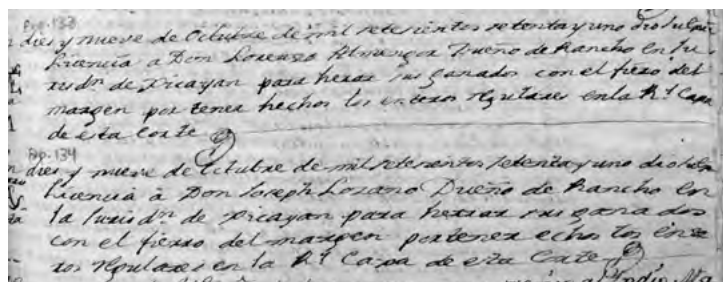 Exp. 133
diez y nueve de Octubre de mil setesientos setenta y uno dio su
Licencia â Don Lorenzo Almanza Dueño de Rancho en Ju
risdn. de Xicayan para herrar sus ganados con el fierro del
margen por tener hechos los enteros regulares en la Rl. Caxa
de esta Corte
Exp. 134
diez y nueve de Octubre de mil setesientos setenta y uno dio su
Licencia â Don Joseph Lozano Dueño de Rancho en
la Jurisdn. de Xicayan para herrar sus ganados
con el fierro del margen por tener echos los ente
ros regulares en la Rl. Caxa de esta Corte
Indio